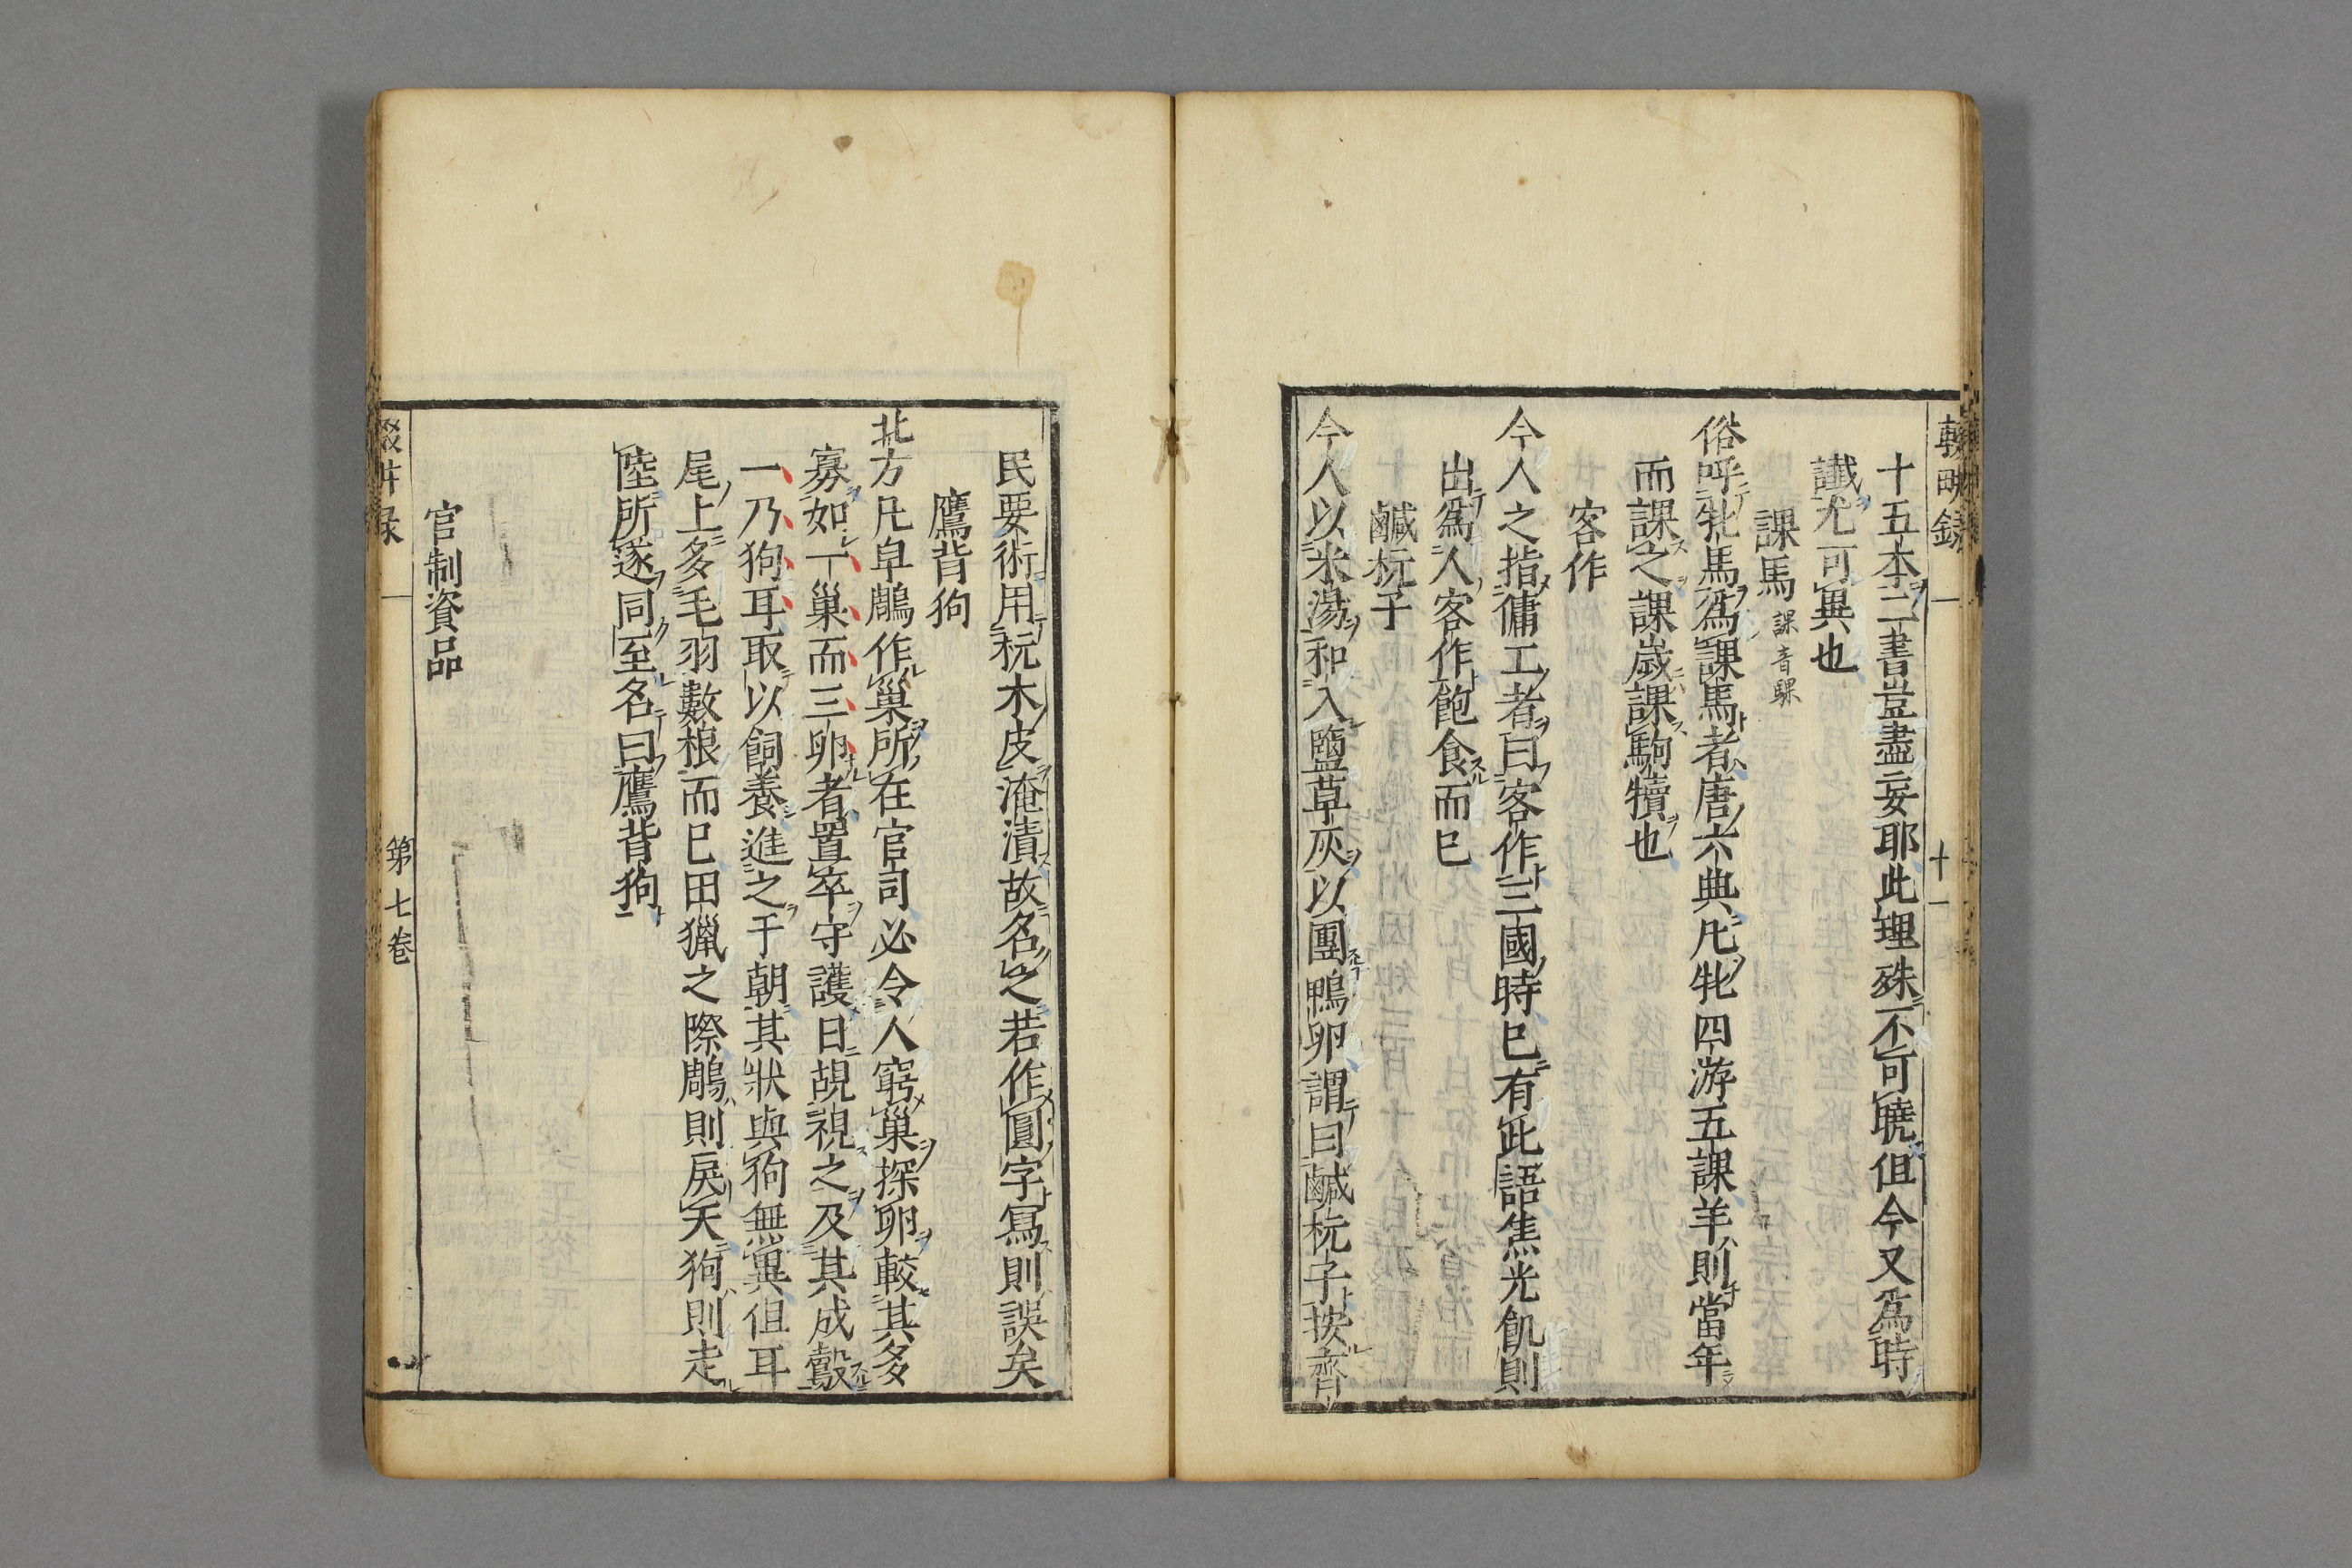 輟畊録 十一
十五本二書豈盡妄耶此理殊不可曉但今又為時
讖尤可異也
課馬 課音騍
俗呼牝馬為課馬者唐六典凡牝四游五課羊則當年
而課之課歲課駒犢也
客作
今人之指傭工者曰客作三國時已有此語焦光飢則
出為人客作飽食而已
鹹杬子
今人以米湯和入鹽草灰以團鴨卵謂曰鹹杬子按齊
民要術用杬木皮淹漬故名之若作圓字寫則誤矣
鷹背狗
北方凡皁鵰作巢所在官司必令人窮巢探卵較其多
寡如一巢而三卵者置卒守護日覘視之及其成鷇
一乃狗耳取以飼養進之于朝其狀與狗無異但耳
尾上多毛羽數根而已田獵之際鵰則戾天狗則走
陸所逐同至名曰鷹背狗
官制資品
輟畊录 第七卷